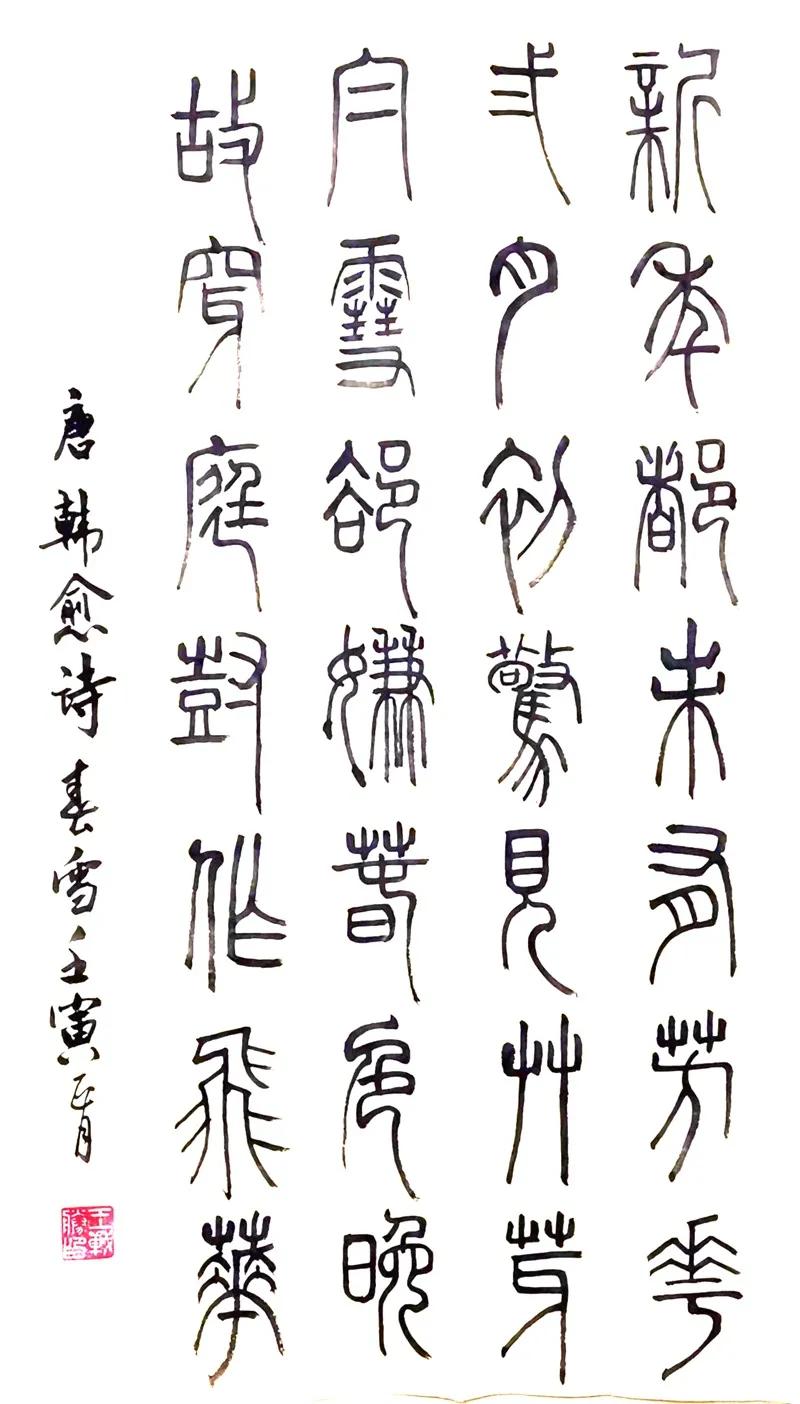 新年都未有芳花
弍月初驚見艸芽
白雪郤嫌春色晚
故穿庭尌作飛華
唐韩愈诗春雪壬寅正月